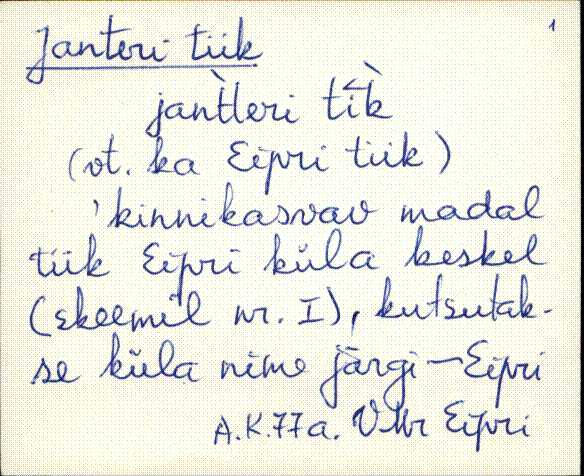 1
Janteri tiik
jan̆tteri tīk̀
(vt. ka Eipri tiik)
'kinnikasvav madal
tiik Eipri küla keskel
(skeemil nr. I), kutsutak-
se küla nime järgi – Eipri
A.K.77a. VMr Eipri